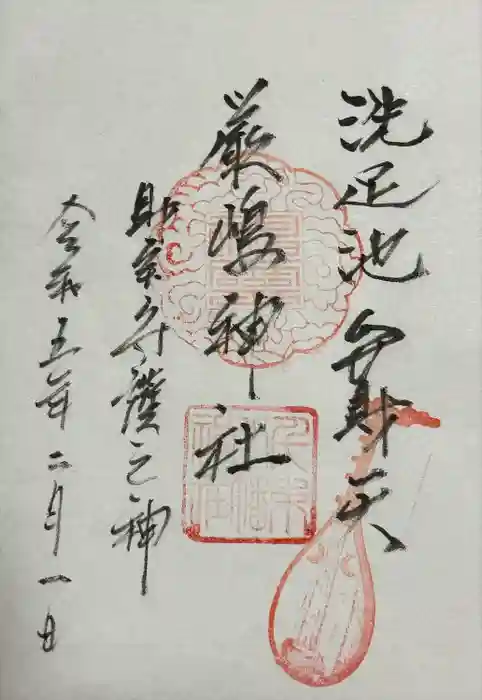 洗足池 弁財天
厳嶋神社
財宝守護之神
令和五年二月一日